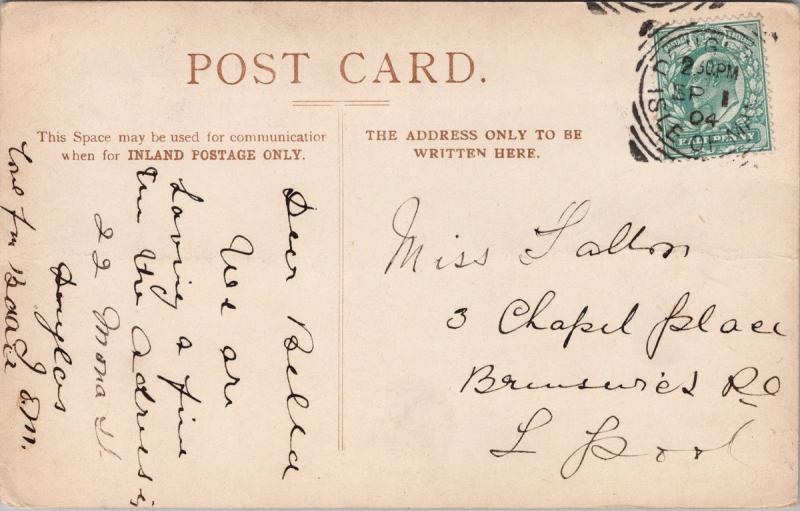 POST CARD.
This Space may be used for communication
when for INLAND POSTAGE ONLY.
THE ADDRESS ONLY TO BE
WRITTEN HERE.
DOUGLAS
2.30PM
SEP 1
04
ISLE OF MAN
HALFPENNY
Dear Bella
We are
having a fine
time the Adress is
22 Mona St.
Douglas
Love from
Miss Fallon
3 Chapel place
Brunswick Rd
L pool